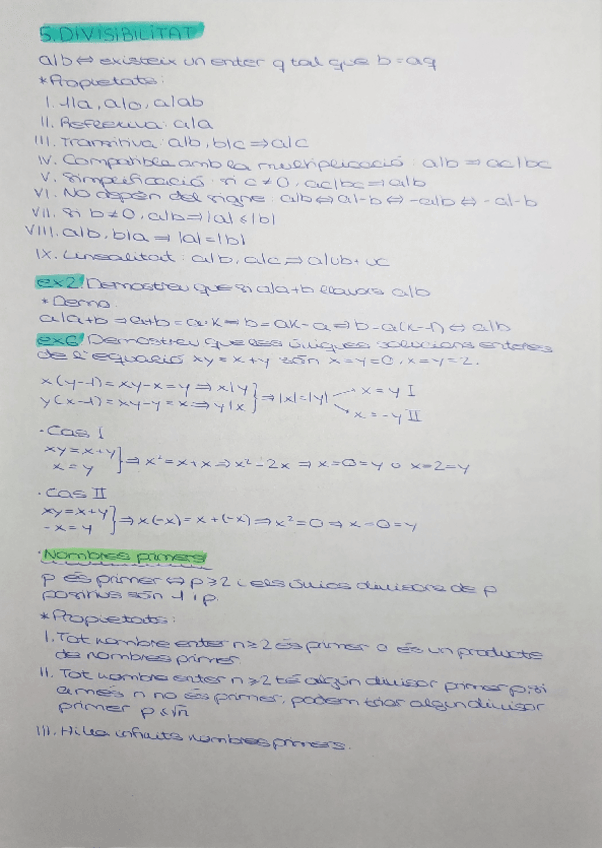 5. DIVISIBILITAT
a|b ⇔ existeix un enter q tal que b = aq
*Propietats:
I. 1|a, a|0, a|ab
II. Reflexiva: a|a
III. Transitiva: a|b, b|c ⇒ a|c
IV. Compatible amb la multiplicació: a|b ⇒ ac|bc
V. Simplificació: si c≠0, ac|bc ⇒ a|b
VI. No depèn del signe: a|b ⇔ a|-b ⇔ -a|b ⇔ -a|-b
VII. Si b≠0, a|b ⇒ |a| ≤ |b|
VIII. a|b, b|a ⇒ |a| = |b|
IX. Linealitat: a|b, a|c ⇒ a|ub+vc
ex2 Demostreu que si a|a+b llavors a|b
*Demo
a|a+b ⇒ a+b = a·k ⇒ b = ak-a ⇒ b = a(k-1) ⇔ a|b
ex6 Demostreu que les úniques solucions enteres
de l'equació xy = x+y són x=y=0, x=y=2.
x(y-1) = xy-x = y ⇒ x|y } ⇒ |x|=|y| → x = y I
y(x-1) = xy-y = x ⇒ y|x } → x = -y II
· Cas I
xy = x+y } ⇒ x² = x+x ⇒ x²-2x ⇒ x=0=y o x=2=y
x = y
· Cas II
xy = x+y } ⇒ x(-x) = x+(-x) ⇒ x² = 0 ⇒ x=0=y
-x = y
· Nombres primers
p és primer ⇔ p≥2 i els únics divisors de p
positius són 1 i p.
*Propietats:
I. Tot nombre enter n≥2 és primer o és un producte
de nombres primer
II. Tot nombre enter n≥2 té algún divisor primer p; si
a més n no és primer, podem triar algun divisor
primer p≤√n
III. Hi ha infinits nombres primers.